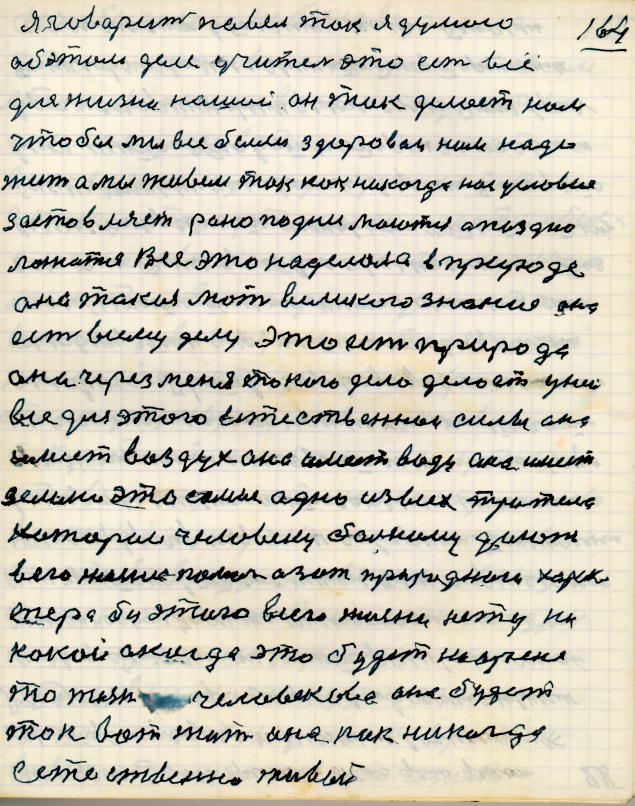 Я говарит павел так я думаю 164
об этом деле учител это ест всё
для жизни нашой он так делает нам
чтобы мы все были здороваи нам надо
жит а мы живем так как никогда нас условие
заставляет рано подни маются а поздно
ложатся Все это наделала в природе
она такая мат великого знания она
ест всему делу это ест природа
она через меня такого дело делает у ней
все для этого естественнаи силы она
имеет воздух она имеет воду она имеет
землю это самае адно из всех три тела
катораи человеку больному дают
в его азат природнога харк
тера без этаго всего жизни нету ни
какой а когда это будет на арене
то жизн человекова она будет
так вот жит она как никогда
естественно живой